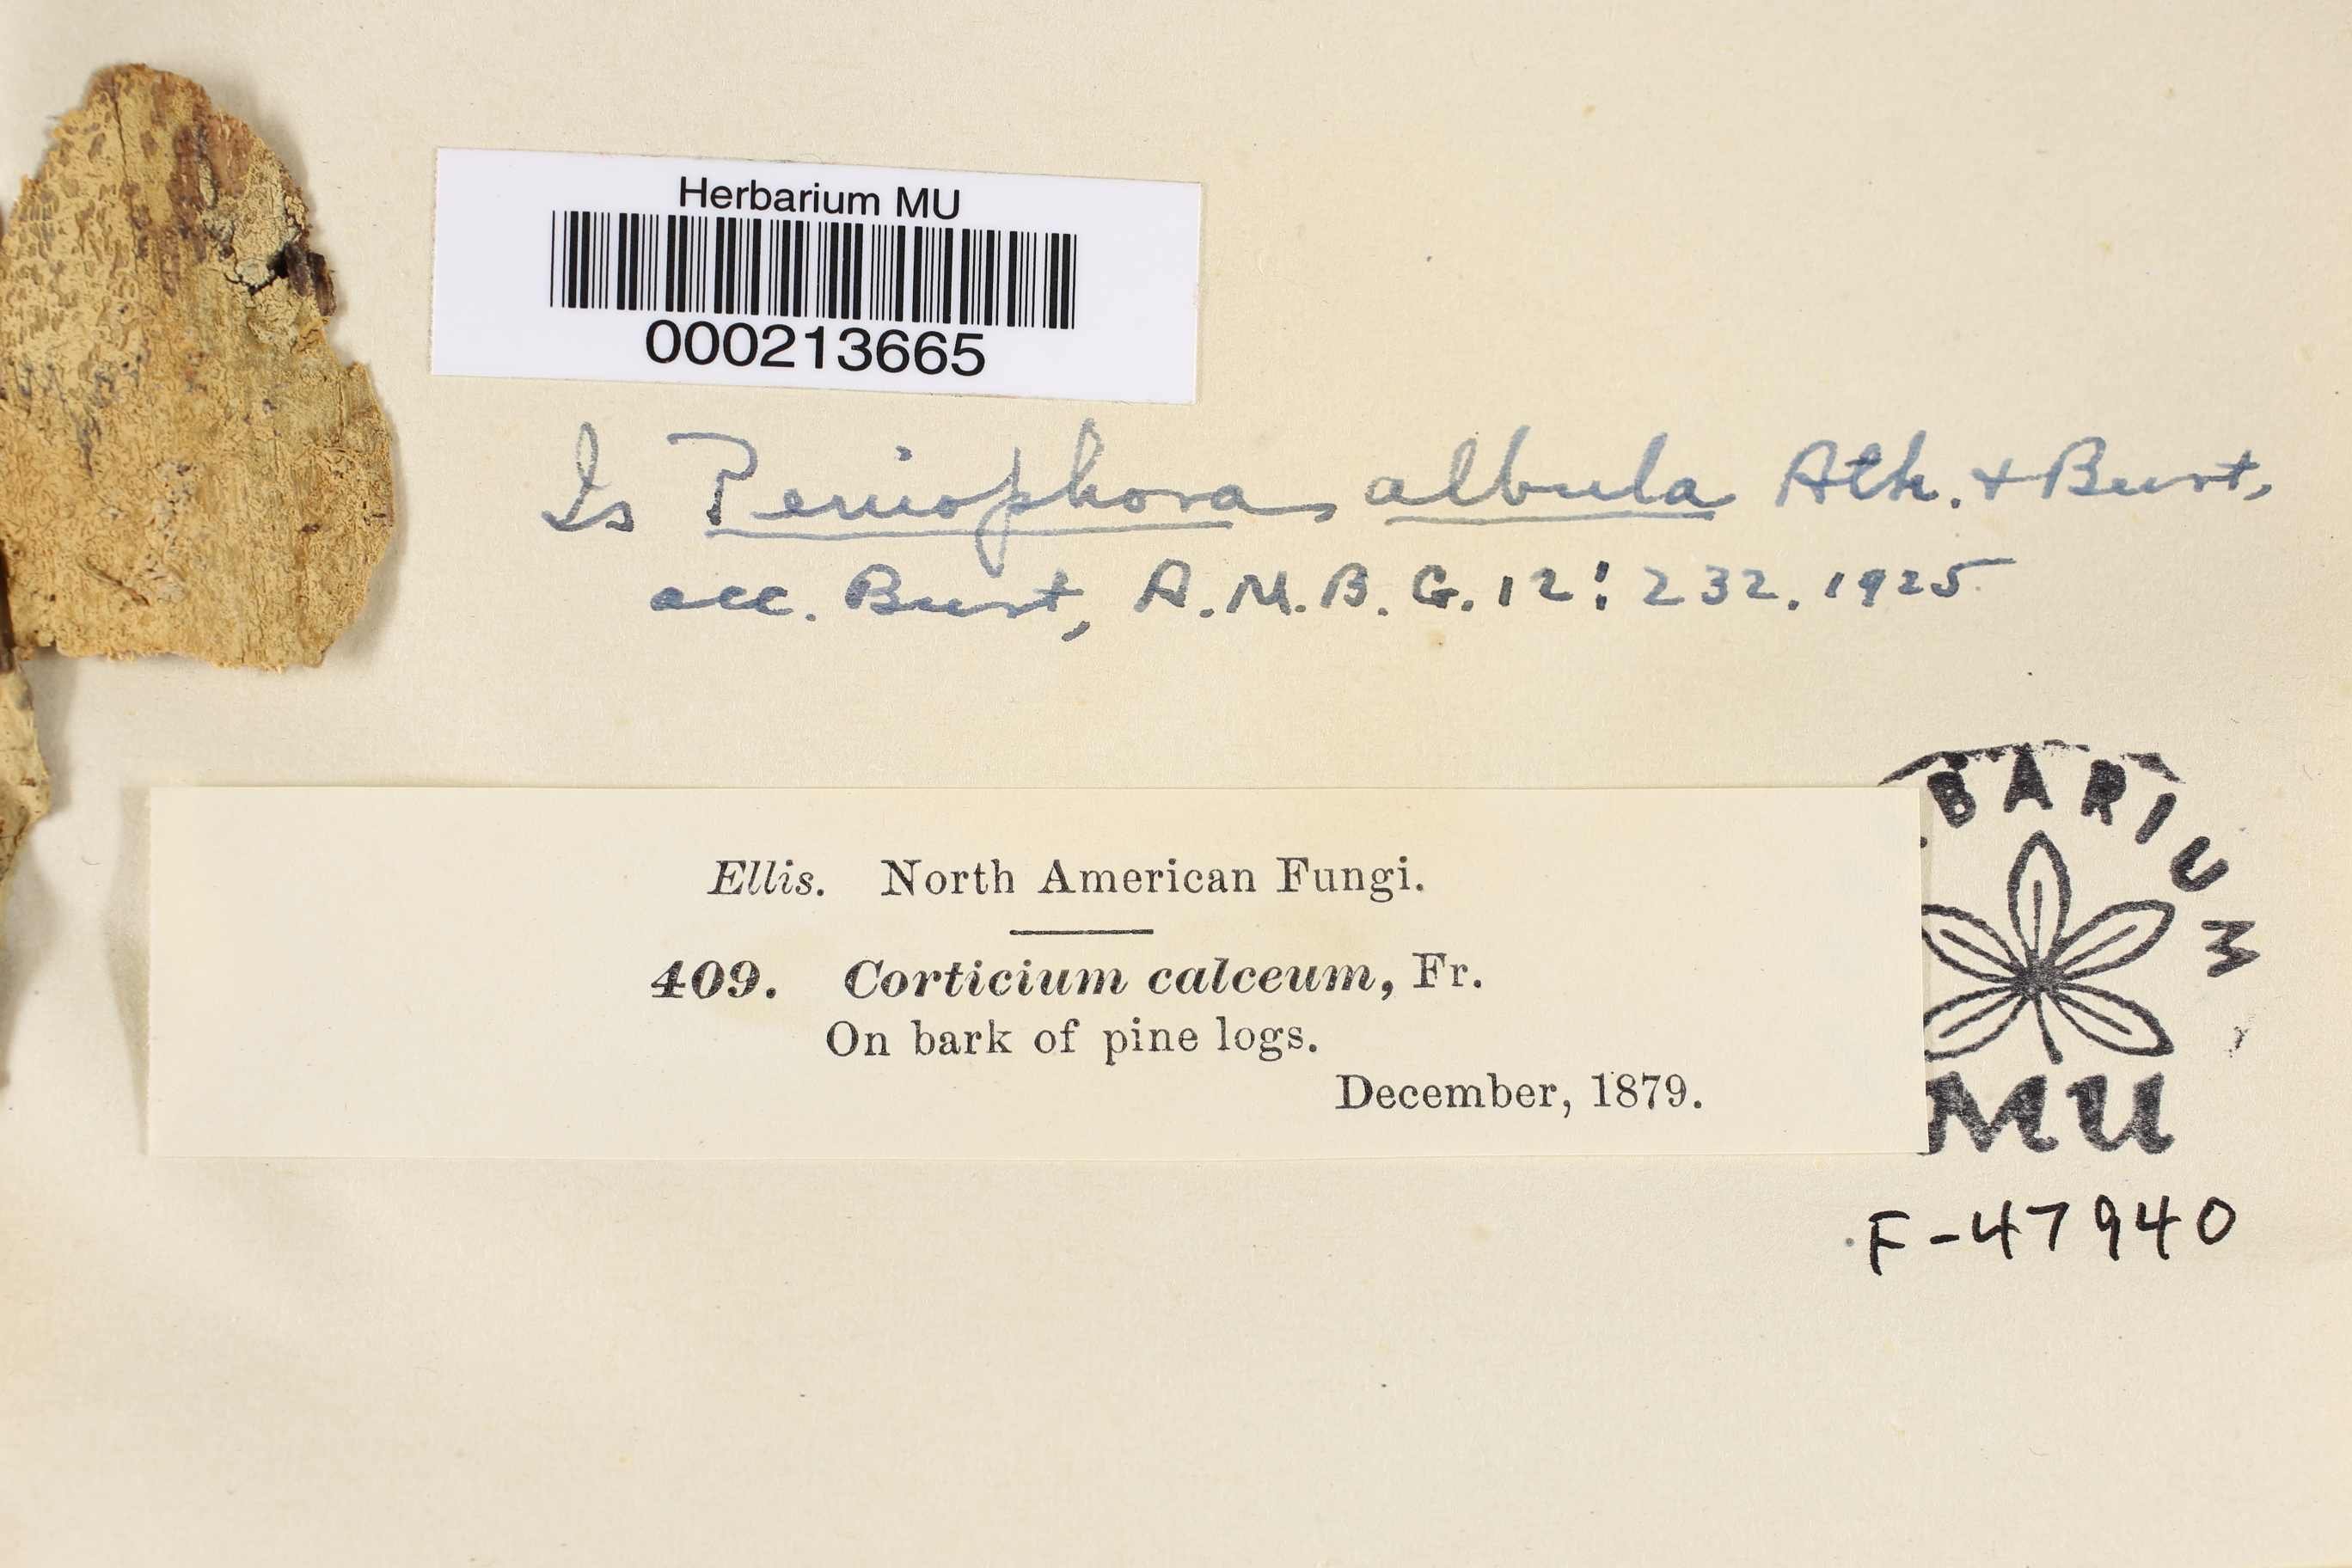 Herbarium MU
000213665
Is Peniophora albula Atk. & Burt,
acc. Burt, A.M.B.G. 12: 232. 1925
Ellis. North American Fungi.
409. Corticium calceum, Fr.
On bark of pine logs.
December, 1879.
BARIUM
MU
F-47940